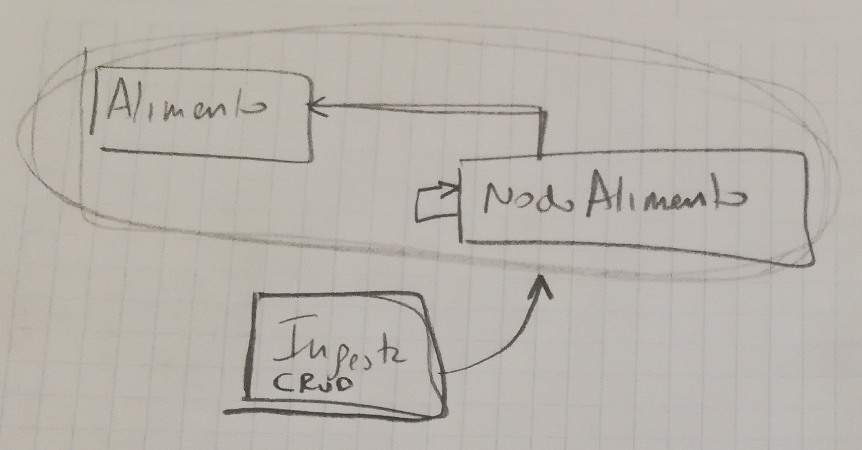 Alimento
NodoAlimento
Ingesta
CRUD